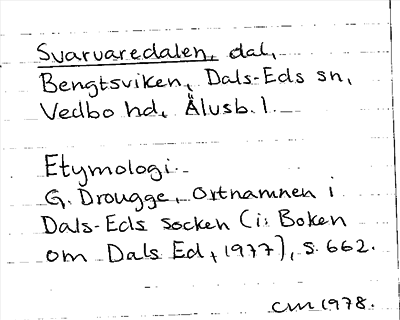 Svarvaredalen, dal,
Bengtsviken, Dals-Eds sn,
Vedbo hd, Älvsb. l.
Etymologi.
G. Drougge, Ortnamnen i
Dals-Eds socken (i: Boken
om Dals Ed, 1977), s. 662.
CM 1978.